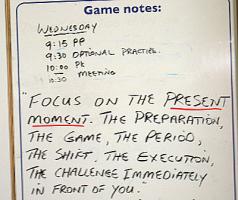 Game notes:
WEDNESDAY
9:15 PP
9:30 OPTIONAL PRACTICE
10:00 PK
10:30 MEETING
"FOCUS ON THE PRESENT
MOMENT. THE PREPARATION,
THE GAME, THE PERIOD,
THE SHIFT, THE EXECUTION,
THE CHALLENGE IMMEDIATELY
IN FRONT OF YOU."